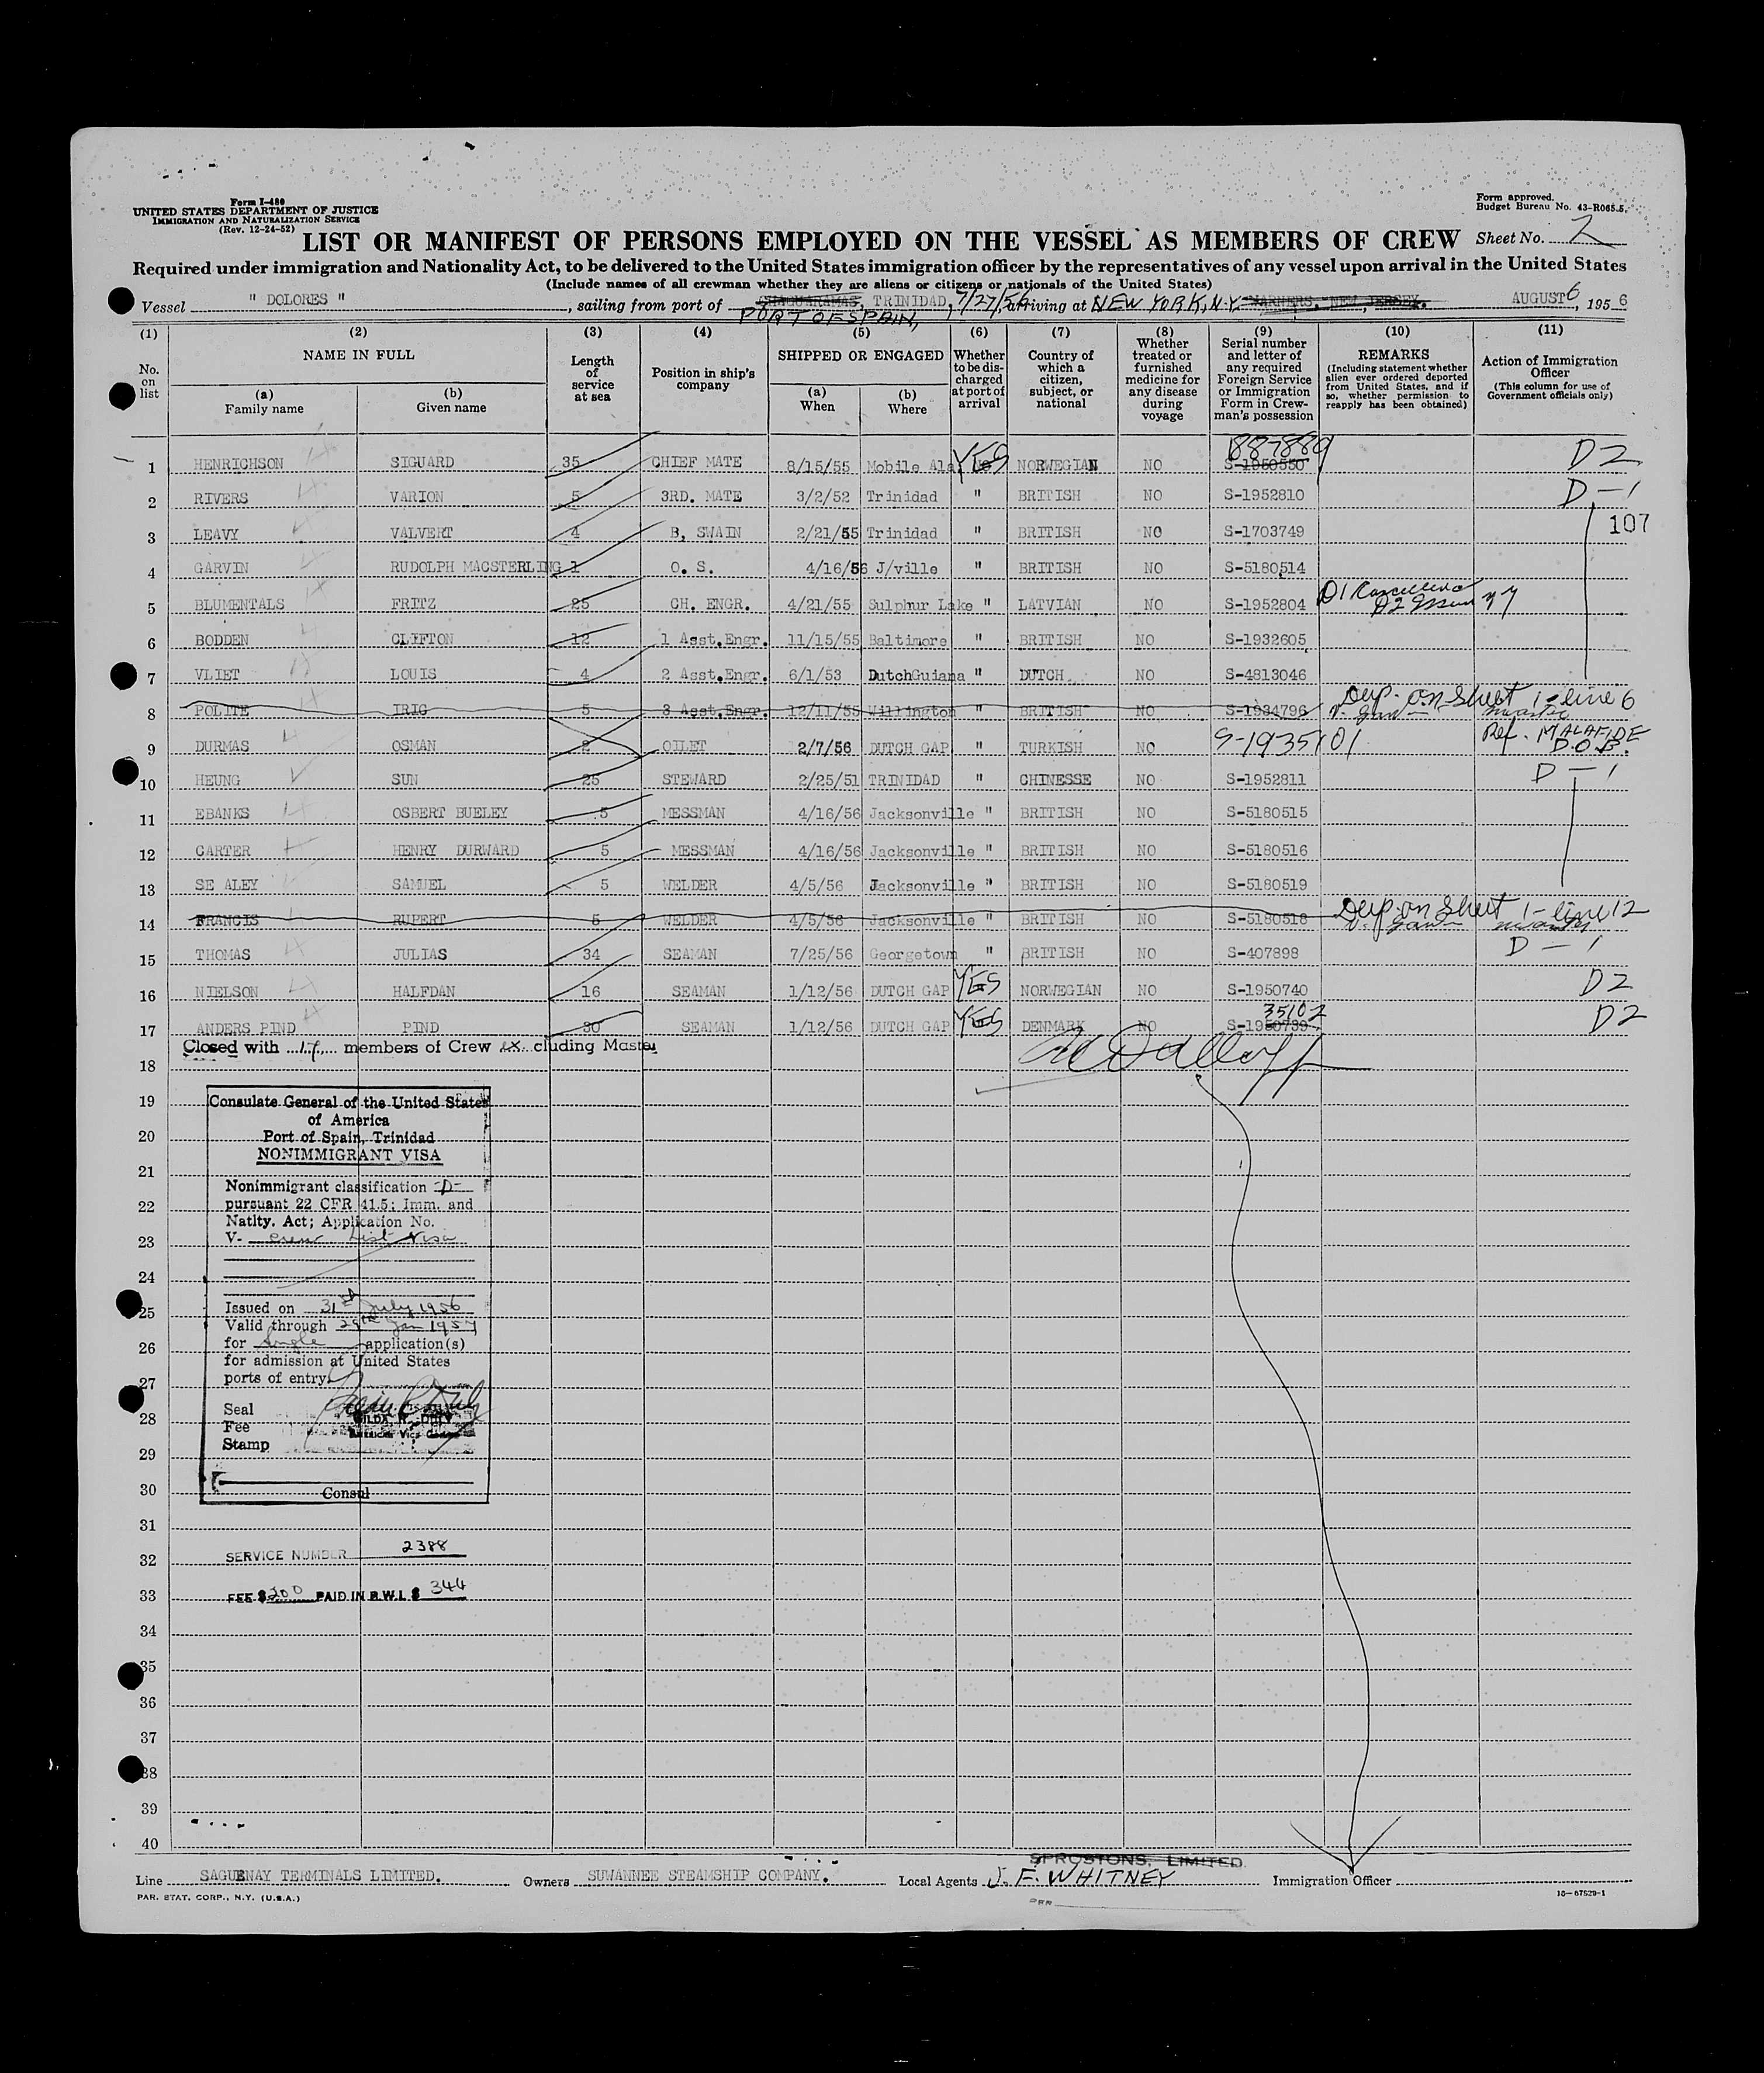 Form I-480
UNITED STATES DEPARTMENT OF JUSTICE
IMMIGRATION AND NATURALIZATION SERVICE
(Rev. 12-24-52)
Form approved.
Budget Bureau No. 43-R065.5.
LIST OR MANIFEST OF PERSONS EMPLOYED ON THE VESSEL AS MEMBERS OF CREW Sheet No. 2
Required under immigration and Nationality Act, to be delivered to the United States immigration officer by the representatives of any vessel upon arrival in the United States
(Include names of all crewman whether they are aliens or citizens or nationals of the United States)
Vessel " DOLORES ", sailing from port of CHAGUARAMAS, TRINIDAD, 7/27/56, arriving at NEW YORK, N.Y. WARNERS, NEW JERSEY, AUGUST 6, 1956
PORT OF SPAIN,
(1) (2) (3) (4) (5) (6) (7) (8) (9) (10) (11)
No. on list
NAME IN FULL
(a) Family name
(b) Given name
Length of service at sea
Position in ship's company
SHIPPED OR ENGAGED
(a) When
(b) Where
Whether to be discharged at port of arrival
Country of which a citizen, subject, or national
Whether treated or furnished medicine for any disease during voyage
Serial number and letter of any required Foreign Service or Immigration Form in Crewman's possession
REMARKS
(Including statement whether alien ever ordered deported from United States, and if so, whether permission to reapply has been obtained)
Action of Immigration Officer
(This column for use of Government officials only)
887889
1 HENRICHSON SIGUARD 35 CHIEF MATE 8/15/55 Mobile Ala YES NORWEGIAN NO S-1950550 D2
2 RIVERS VARION 5 3RD. MATE 3/2/52 Trinidad " BRITISH NO S-1952810 D-1
107
3 LEAVY VALVERT 4 B, SWAIN 2/21/55 Trinidad " BRITISH NO S-1703749
4 GARVIN RUDOLPH MACSTERLING 1 O. S. 4/16/56 J/ville " BRITISH NO S-5180514
5 BLUMENTALS FRITZ 25 CH. ENGR. 4/21/55 Sulphur Lake " LATVIAN NO S-1952804 D1 Cancelled
D2 Issued NY
6 BODDEN CLIFTON 12 1 Asst.Engr. 11/15/55 Baltimore " BRITISH NO S-1932605
7 VLIET LOUIS 4 2 Asst.Engr. 6/1/53 DutchGuiana " DUTCH NO S-4813046
8 POLITE IRIG 5 3 Asst.Engr. 12/11/55 Willington " BRITISH NO S-1934796 Dup. on Sheet 1 - line 6
9 DURMAS OSMAN 2 OILET 2/7/56 DUTCH GAP " TURKISH NO S-1935101 Ref. MALAFIDE
D.O.B.
10 HEUNG SUN 25 STEWARD 2/25/51 TRINIDAD " CHINESSE NO S-1952811 D-1
11 EBANKS OSBERT BUELEY 5 MESSMAN 4/16/56 Jacksonville " BRITISH NO S-5180515
12 CARTER HENRY DURWARD 5 MESSMAN 4/16/56 Jacksonville " BRITISH NO S-5180516
13 SE ALEY SAMUEL 5 WELDER 4/5/56 Jacksonville " BRITISH NO S-5180519
14 FRANCIS RUPERT 5 WELDER 4/5/56 Jacksonville " BRITISH NO S-5180518 Dup. on Sheet 1 - line 12
15 THOMAS JULIAS 34 SEAMAN 7/25/56 Georgetown " BRITISH NO S-407898 D-1
16 NIELSON HALFDAN 16 SEAMAN 1/12/56 DUTCH GAP YES NORWEGIAN NO S-1950740 D2
35102
17 ANDERS PIND PIND 30 SEAMAN 1/12/56 DUTCH GAP YES DENMARK NO S-1950739 D2
Closed with 17 members of Crew excluding Master
18
19
20
21
22
23
24
25
26
27
28
29
30
31
32
33
34
35
36
37
38
39
40
Consulate General of the United States
of America
Port of Spain, Trinidad
NONIMMIGRANT VISA
Nonimmigrant classification -D-
pursuant 22 CFR 41.5; Imm. and
Natlty. Act; Application No.
V- Crew List Visa
Issued on 31st July 1956
Valid through 29th Jan 1957
for Single application(s)
for admission at United States
ports of entry.
Seal
Fee
Stamp
Consul
SERVICE NUMBER 2388
FEE $ 200 PAID IN B.W.I. $ 344
Line SAGUENAY TERMINALS LIMITED. Owners SUWANNEE STEAMSHIP COMPANY. Local Agents SPROSTONS, LIMITED J. F. WHITNEY Immigration Officer
PAR. STAT. CORP., N.Y. (U.S.A.)
16-67529-1